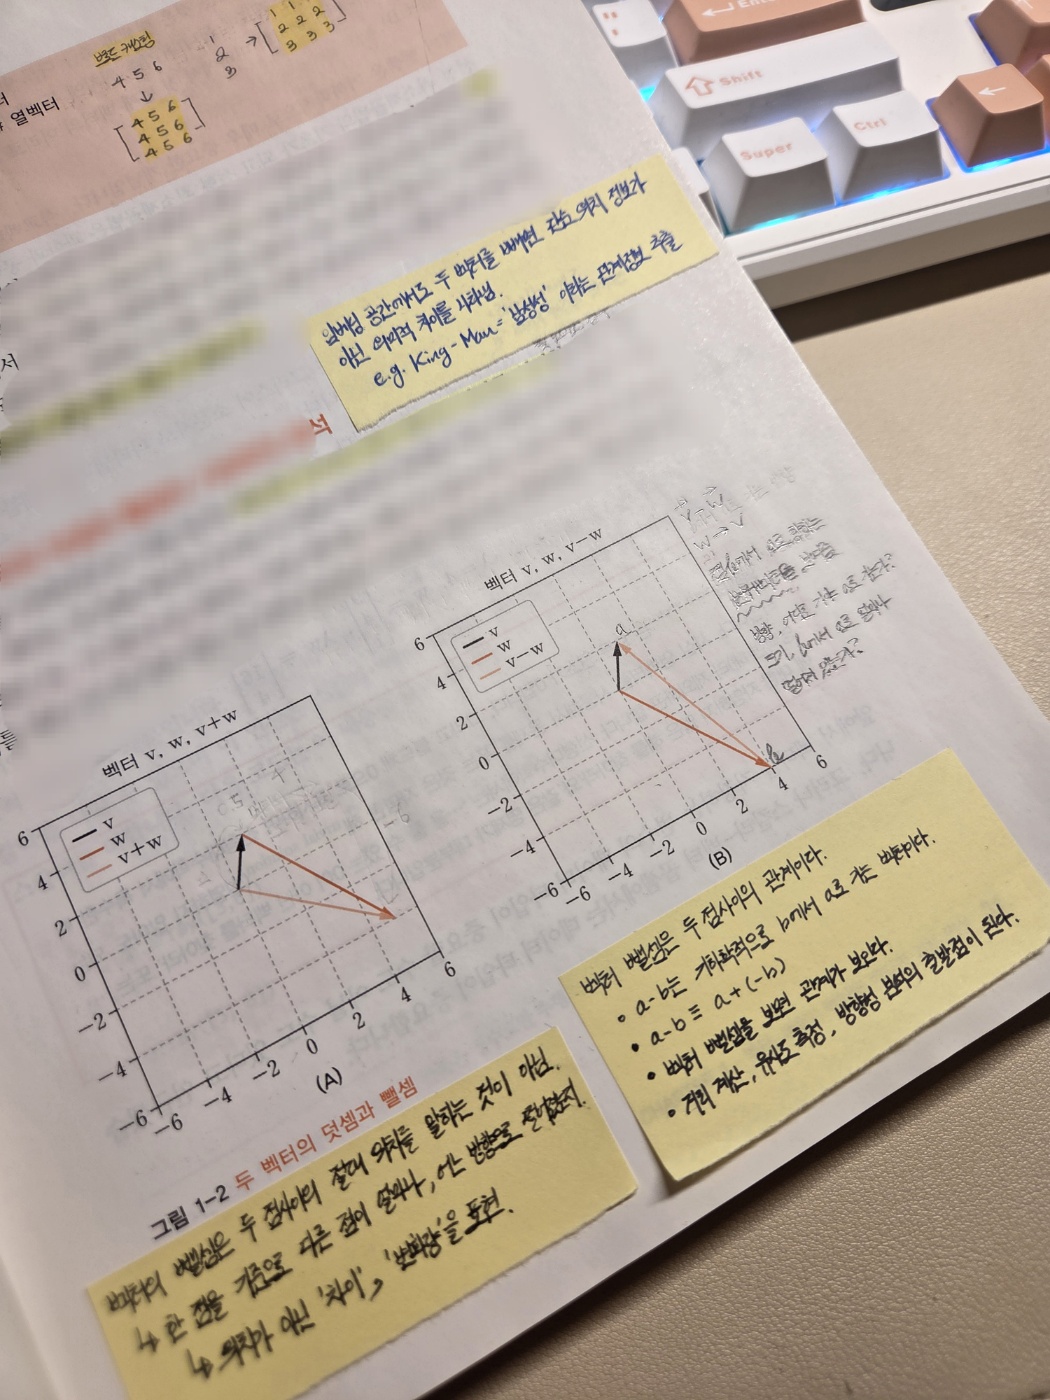 브로드 캐스팅
4 5 6
↓
4 5 6
4 5 6
4 5 6
1
2
3
→
1 1 1
2 2 2
3 3 3
터
열벡터
Enter
Shift
Super
Ctrl
임베딩 공간에서도 두 벡터를 빼면 단순 위치 정보가
아닌 의미적 차이를 나타냄.
e.g. King - Man = '남성성' 이라는 관계정보 추출
서
석
벡터 v, w, v−w
v
w
v−w
6
4
2
0
−2
−4
−6
−6
−4
−2
0
2
4
6
(B)
a
b
v-w
w→v
점 b에서 a로 향하는
방향, 어디로 가는 a로 가는?
크기, b에서 a로 얼마나
떨어져 있는가?
벡터 v, w, v+w
v
w
v+w
6
4
2
0
−2
−4
−6
−6
−4
−2
0
2
4
6
(A)
그림 1-2 두 벡터의 덧셈과 뺄셈
벡터 뺄셈은 두 점사이의 관계이다.
• a-b는 기하학적으로 b에서 a로 가는 벡터이다.
• a-b ≡ a+(-b)
• 벡터 뺄셈을 보면 관계가 보인다.
• 거리 계산, 유사도 측정, 방향성 분석의 출발점이 된다.
벡터의 뺄셈은 두 점사이의 절대 위치를 말하는 것이 아님.
↳ 한 점을 기준으로 다른 점이 얼마나, 어느 방향으로 떨어졌는지.
↳ 위치가 아닌 '차이', '변화량'을 표현.